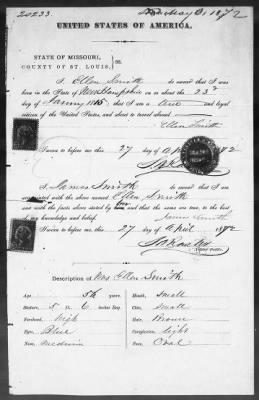 20233
May 3, 1872
UNITED STATES OF AMERICA.
STATE OF MISSOURI,
COUNTY OF ST. LOUIS, } SS.
I, Ellen Smith do swear that I was
born in the State of New Hampshire on or about the 23d
day of that I am a and legal
citizen of the United States, and about to travel abroad.
Ellen Smith
Sworn to before me this 27 day of 1872
I, James Smith do swear that I am
acquainted with the above named Ellen Smith
and with the facts above stated by her and that the same are true, to the best
of my knowledge and belief.
James Smith
Sworn to before me this 27 day of April 1872
Description of Mrs Ellen Smith
Age 56 years. Mouth, Small
Stature, 5 ft. 6 inches Eng. Chin, Small
Forehead, high Hair, Brown
Eyes, Blue Complexion, light
Nose, medium Face, Oval